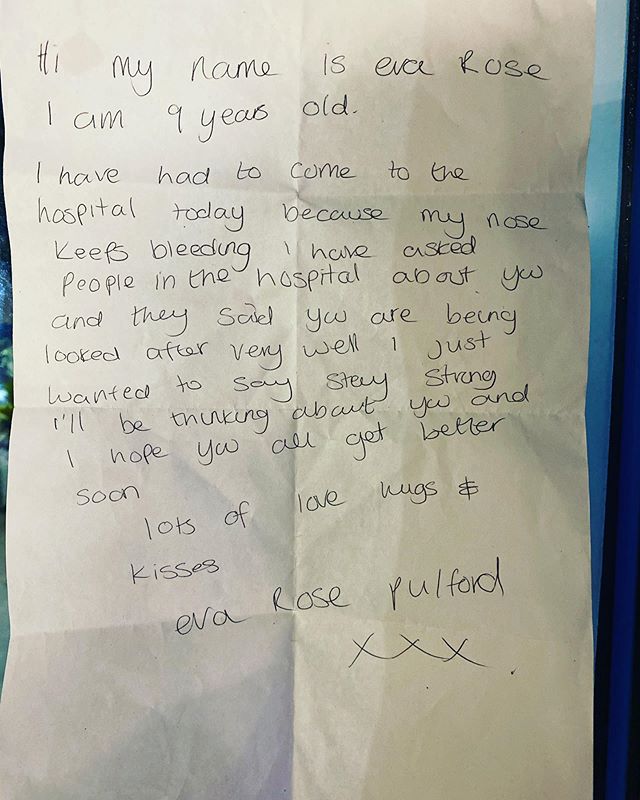 Hi my name is eva Rose
I am 9 years old.
I have had to come to the
hospital today because my nose
keeps bleeding I have asked
people in the hospital about you
and they said you are being
looked after very well I just
wanted to say stay strong
I'll be thinking about you and
I hope you all get better
soon
lots of love hugs &
kisses
eva Rose pulford
xxx